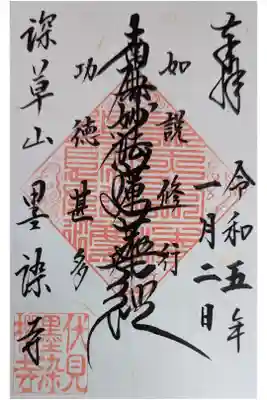 奉拝
令和五年
一月二日
如説修行
南無妙法蓮華経
功徳甚多
深草山 墨染寺
伏見
墨染